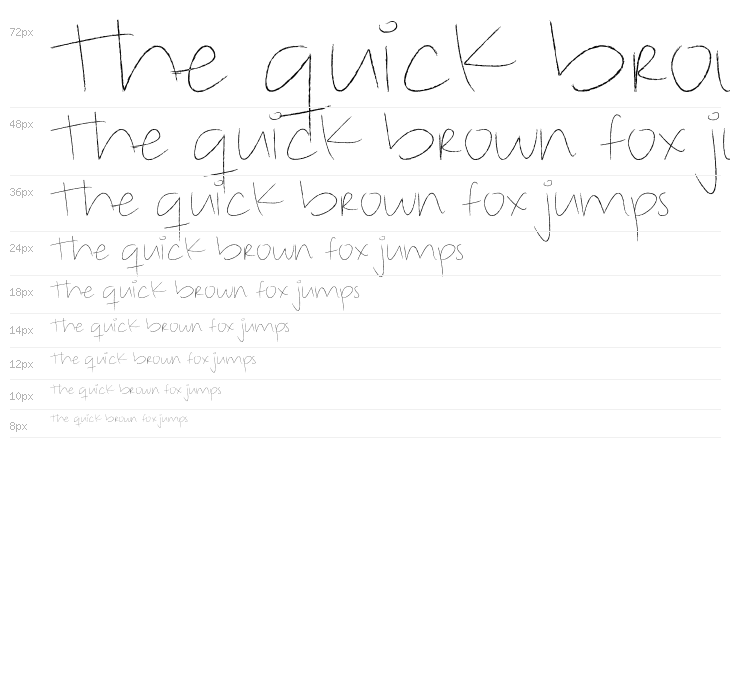 72px the quick brou
48px the quick brown fox ju
36px the quick brown fox jumps
24px the quick brown fox jumps
18px the quick brown fox jumps
14px the quick brown fox jumps
12px the quick brown fox jumps
10px the quick brown fox jumps
8px the quick brown fox jumps